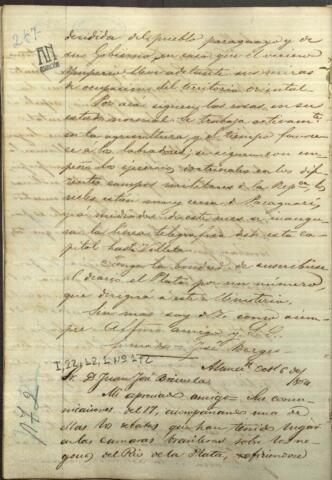 267
ANA
ASUNCION
decidida del pueblo paraguayo y de
su Gobierno, en caso que el vecino
Ymperio lleve adelante sus miras
de ocupacion del territorio oriental.
Por acá siguen las cosas en su
estado normal. Se trabaja activamte
en la agricultura y el tiempo favore-
ce a los labradores; se siguen con em-
peño los ejercicios doctrinales en los dife-
rentes campos militares de la Repca. los
están muy cerca de Paraguari,
y a mediados de este mes se inaugu-
ra la linea telegráfica desde esta ca-
pital hasta Villeta.
Tenga la bondad de suscribirse
al diario el Plata por un número,
que dirigirá a este Ministerio.
Sin mas soy de V. como siem-
pre affmo amigo y S. S.
José Berges
I, 22, 12, 1 Nº 172
Sr. D. Juan José Brizuela
Mi apreciado amigo = Sus comu-
nicaciones del 17, acompañan una de
ellas los debates que han tenido lugar
en las camaras brasileras sobre los ne-
gocios del Rio de la Plata, refiriendose